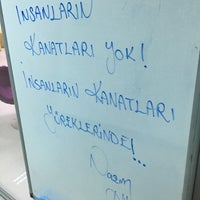 İNSANLARIN
KANATLARI YOK!
İNSANLARIN KANATLARI
YÜREKLERİNDE!...
Nazım